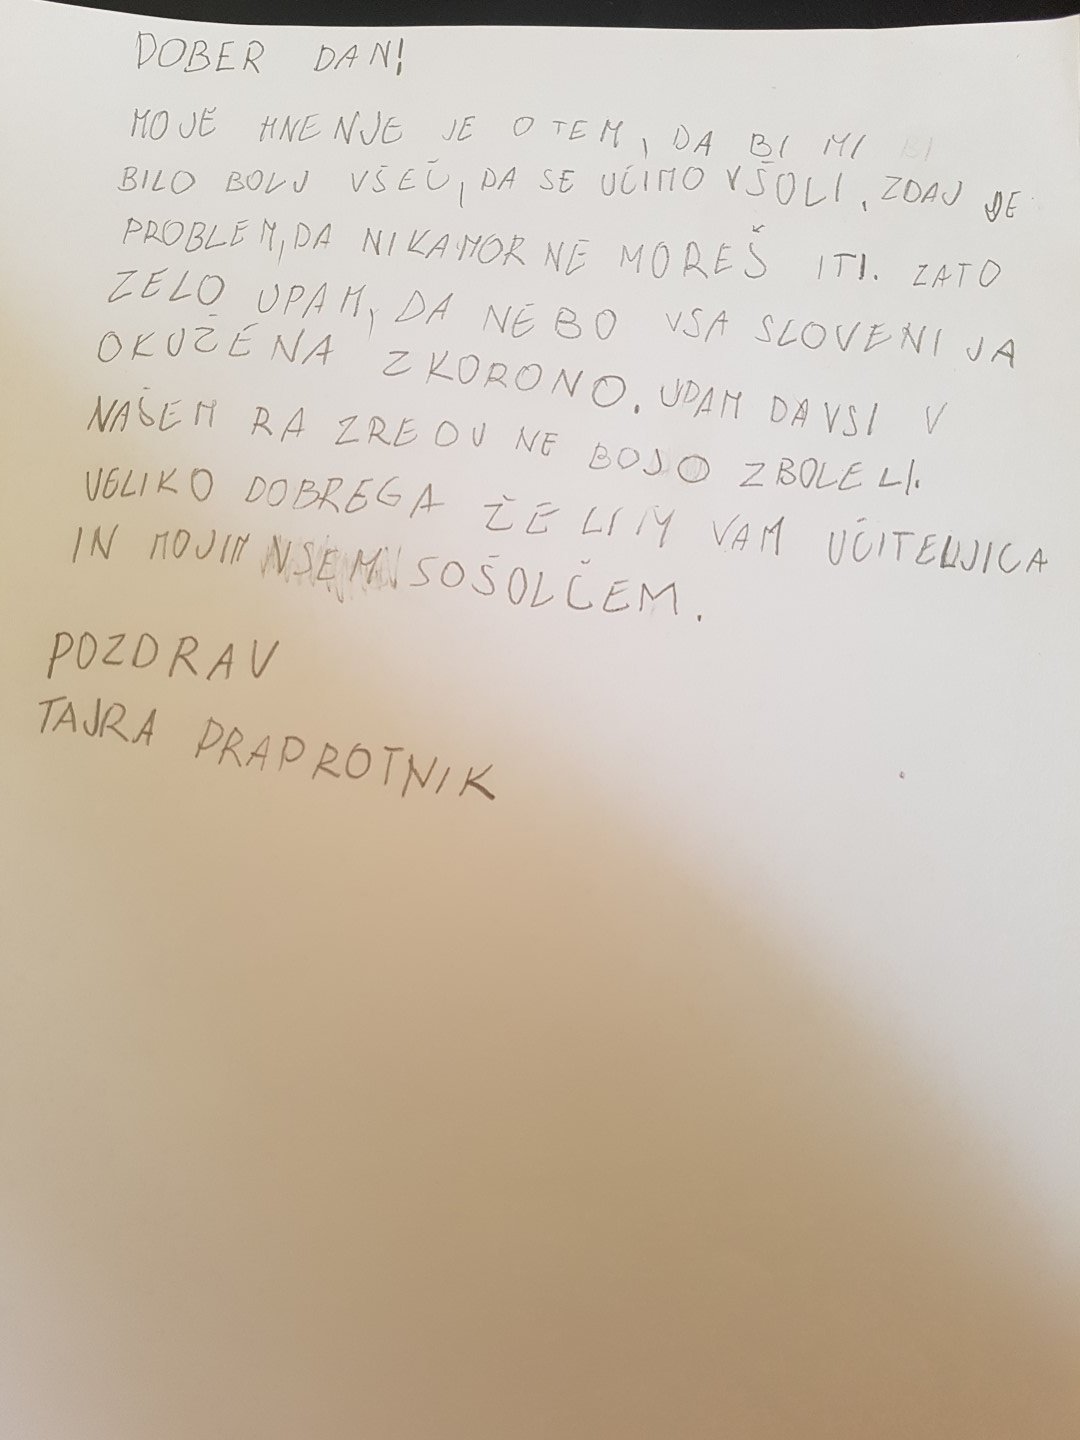 DOBER DAN!
MOJE MNENJE JE O TEM, DA BI MI BI
BILO BOLJ VŠEČ, DA SE UČIMO VŠOLI. ZDAJ JE
PROBLEM, DA NIKAMOR NE MOREŠ ITI. ZATO
ZELO UPAM, DA NEBO VSA SLOVENIJA
OKUŽENA Z KORONO. UPAM DA VSI V
NAŠEM RAZREDU NE BOJO ZBOLELI.
VELIKO DOBREGA ŽELIM VAM UČITELJICA
IN MOJIM VSEM SOŠOLČEM.
POZDRAV
TAJRA PRAPROTNIK